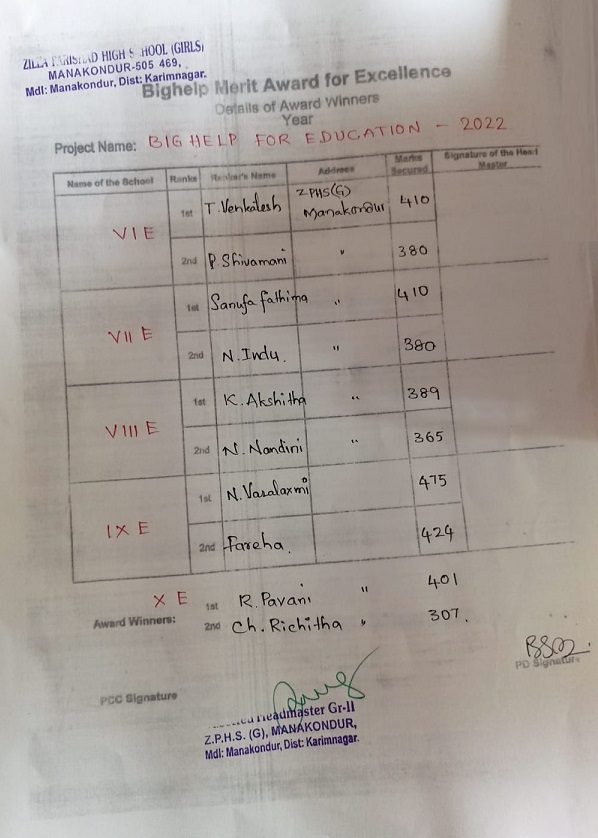 ZILLA PARISHAD HIGH SCHOOL (GIRLS)
MANAKONDUR-505 469,
Mdl: Manakondur, Dist: Karimnagar.
Bighelp Merit Award for Excellence
Details of Award Winners
Year
Project Name: BIG HELP FOR EDUCATION - 2022
Name of the School Ranks Ranker's Name Address Marks Secured Signature of the Head Master
VI E 1st T. Venkatesh ZPHS(G) Manakondur 410
2nd P. Shivamani " 380
VII E 1st Sanufa fathima " 410
2nd N. Indu. " 380
VIII E 1st K. Akshitha " 389
2nd N. Nandini " 365
IX E 1st N. Varalaxmi 475
2nd Fareha. 424
X E 1st R. Pavani " 401
Award Winners: 2nd Ch. Richitha " 307.
PD Signature
PCC Signature
Headmaster Gr-II
Z.P.H.S. (G), MANAKONDUR,
Mdl: Manakondur, Dist: Karimnagar.